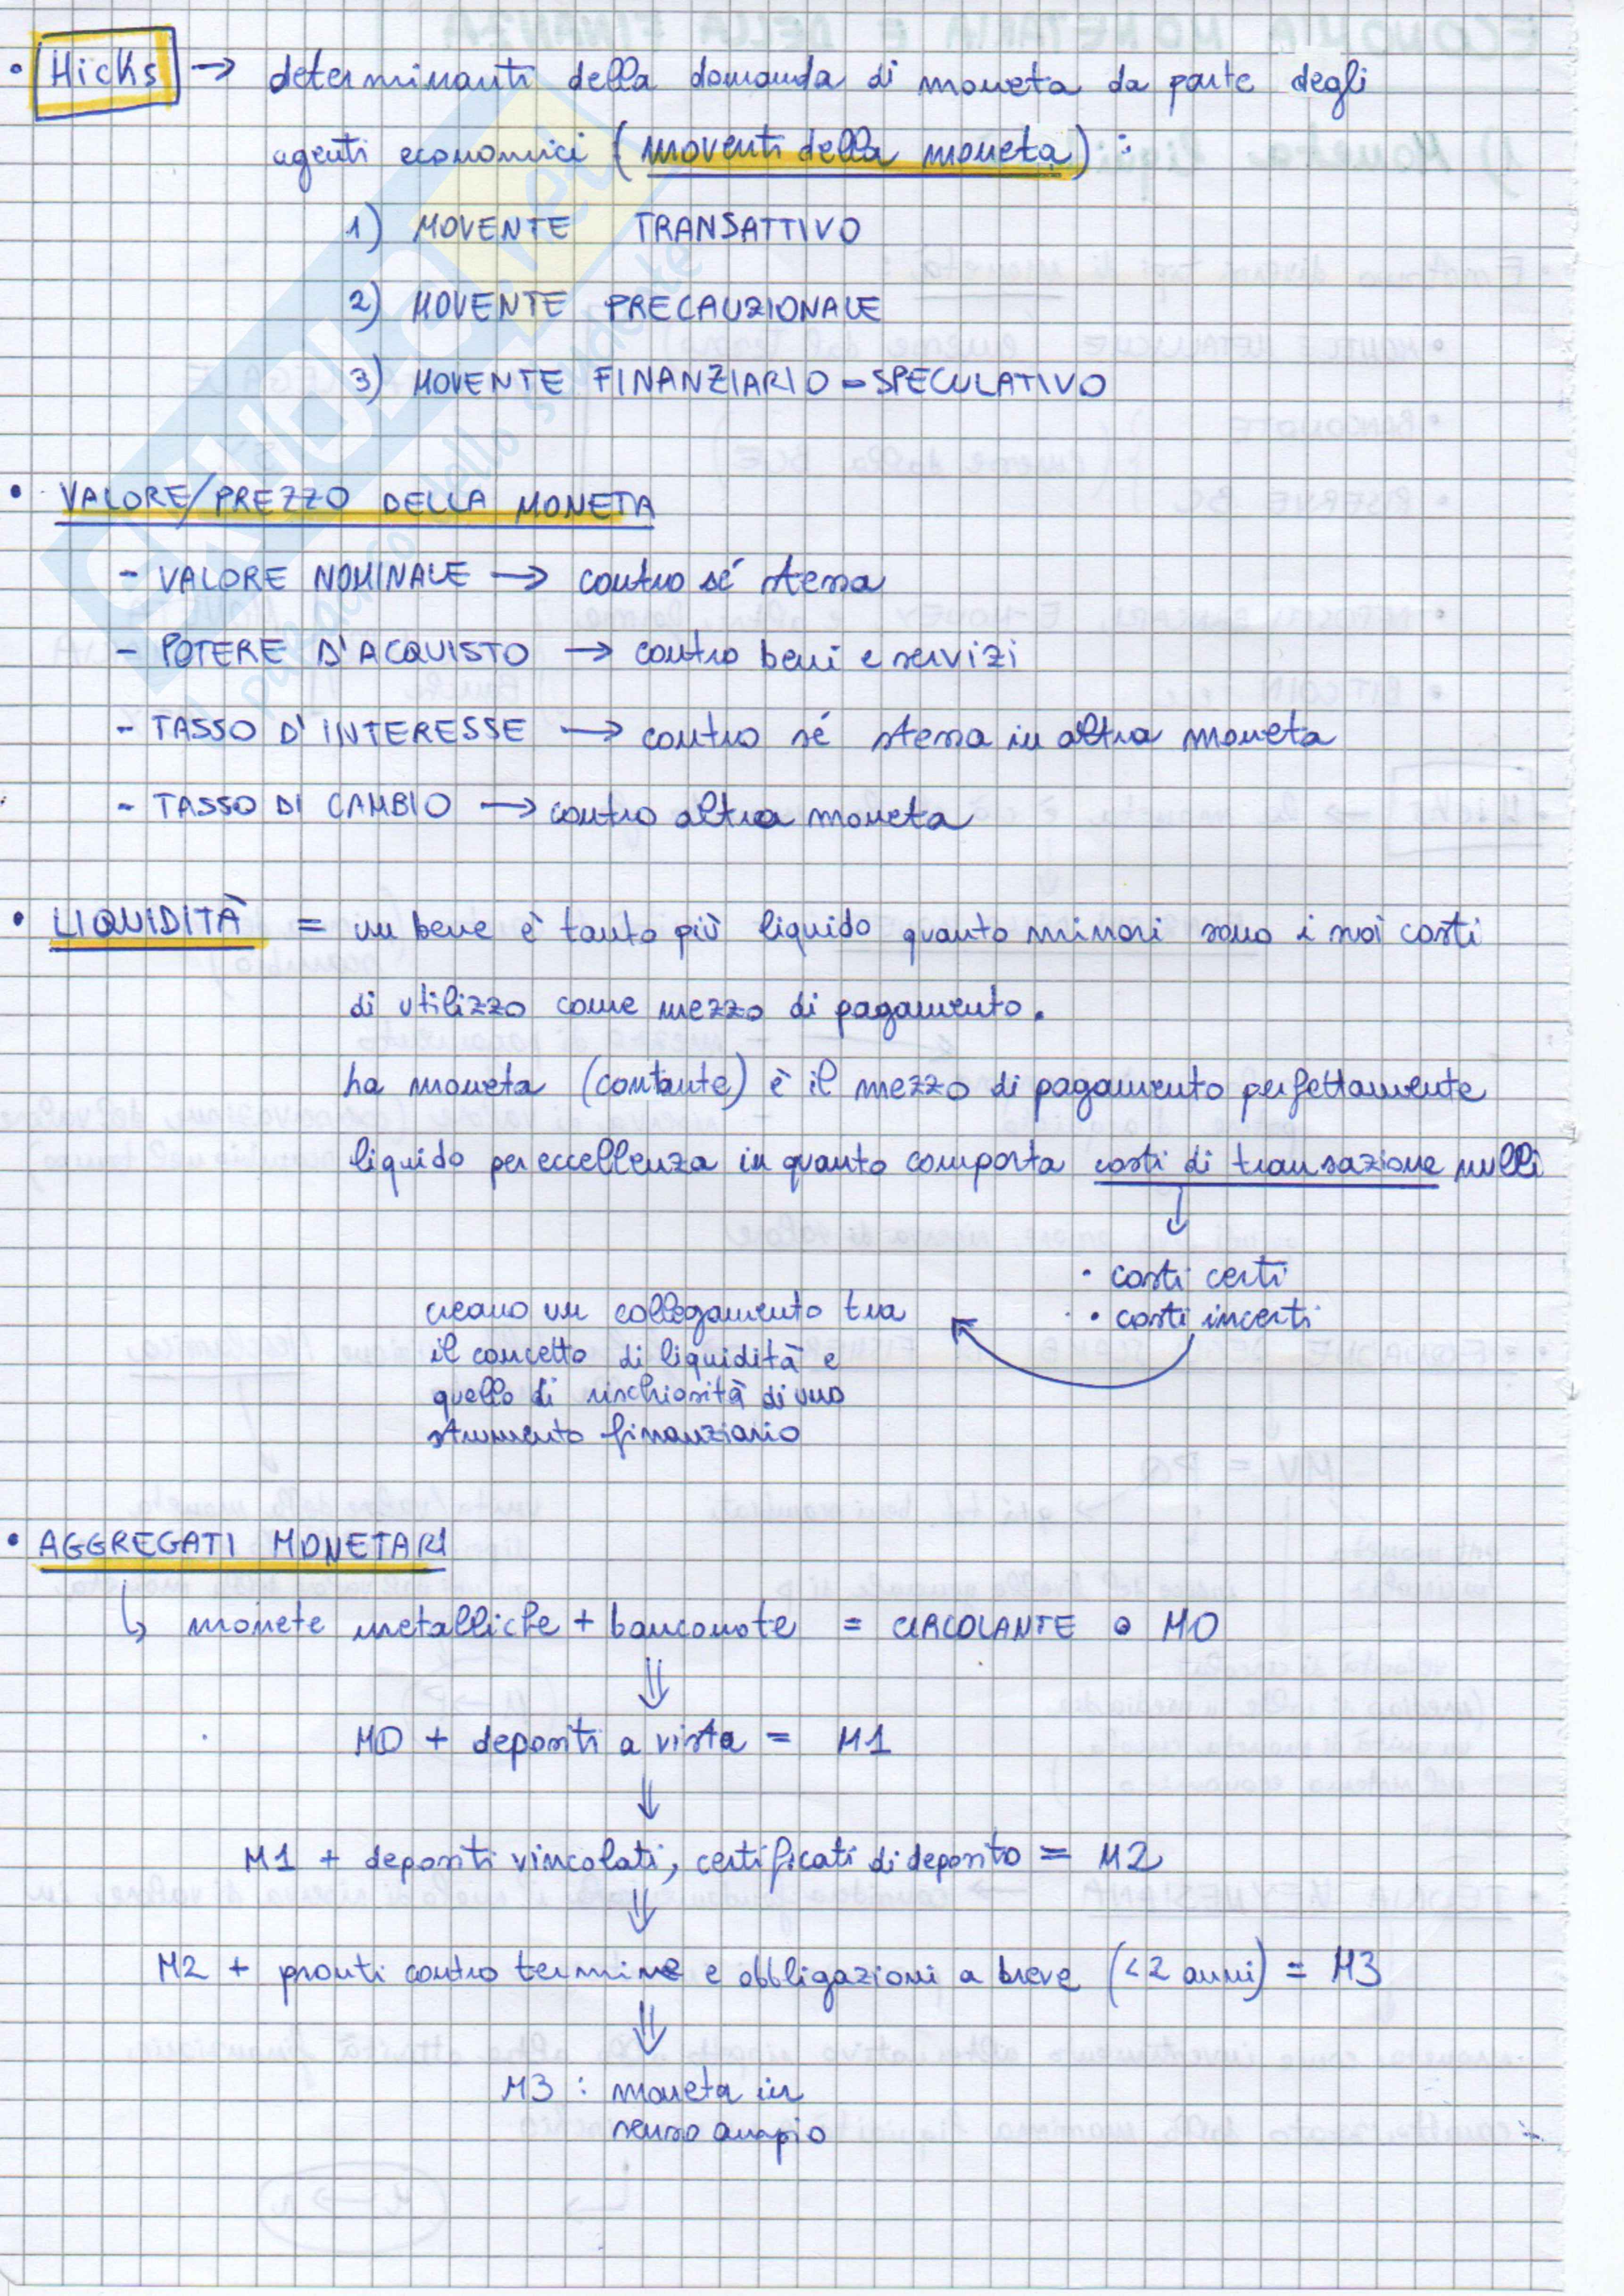 • Hicks → determinanti della domanda di moneta da parte degli
agenti economici (moventi della moneta) :
1) MOVENTE TRANSATTIVO
2) MOVENTE PRECAUZIONALE
3) MOVENTE FINANZIARIO - SPECULATIVO
• VALORE/PREZZO DELLA MONETA
- VALORE NOMINALE → contro sé stessa
- POTERE D'ACQUISTO → contro beni e servizi
- TASSO D'INTERESSE → contro sé stessa in altra moneta
- TASSO DI CAMBIO → contro altra moneta
• LIQUIDITÀ = un bene è tanto più liquido quanto minori sono i suoi costi
di utilizzo come mezzo di pagamento.
La moneta (contante) è il mezzo di pagamento perfettamente
liquido per eccellenza in quanto comporta costi di transazione nulli
↓
• costi certi
• costi incerti
creano un collegamento tra
il concetto di liquidità e
quello di rischiosità di uno
strumento finanziario
• AGGREGATI MONETARI
↳ monete metalliche + banconote = CIRCOLANTE o M0
⇓
M0 + depositi a vista = M1
⇓
M1 + depositi vincolati, certificati di deposito = M2
⇓
M2 + pronti contro termine e obbligazioni a breve (<2 anni) = M3
⇓
M3 : moneta in
senso ampio